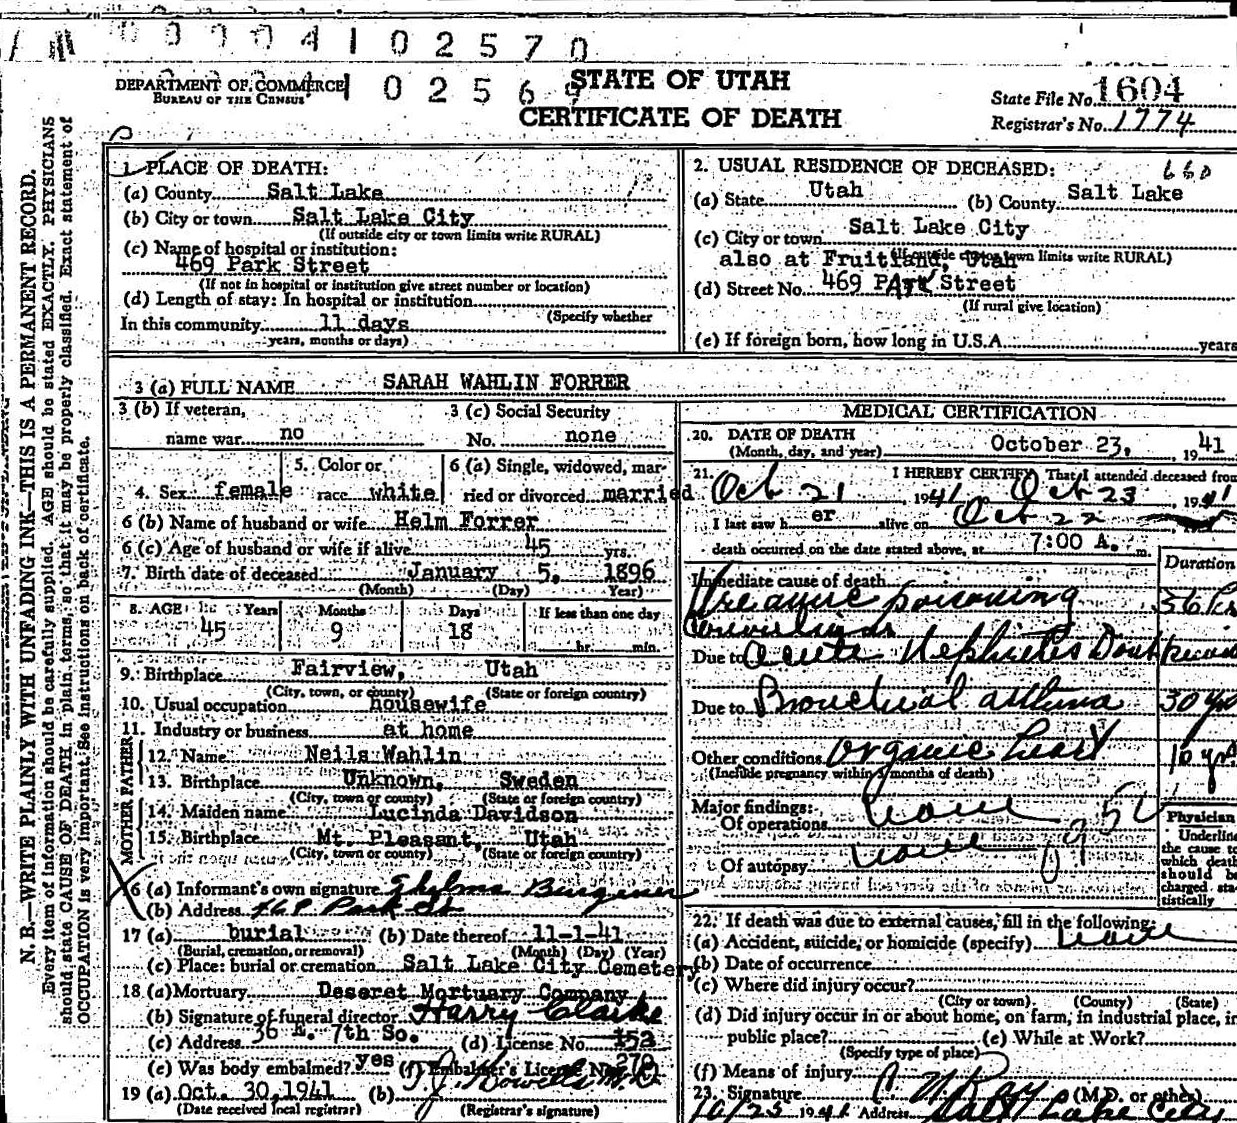 0 0 0 0 4 1 0 2 5 7 0
DEPARTMENT OF COMMERCE
BUREAU OF THE CENSUS
1 0 2 5 6 9
STATE OF UTAH
CERTIFICATE OF DEATH
State File No. 1604
Registrar's No. 1774
N. B.—WRITE PLAINLY WITH UNFADING INK—THIS IS A PERMANENT RECORD.
Every item of information should be carefully supplied. AGE should be stated EXACTLY. PHYSICIANS
should state CAUSE OF DEATH in plain terms, so that it may be properly classified. Exact statement of
OCCUPATION is very important. See instructions on back of certificate.
1. PLACE OF DEATH:
(a) County Salt Lake
(b) City or town Salt Lake City
(If outside city or town limits write RURAL)
(c) Name of hospital or institution:
469 Park Street
(If not in hospital or institution give street number or location)
(d) Length of stay: In hospital or institution
(Specify whether
In this community 11 days
years, months or days)
2. USUAL RESIDENCE OF DECEASED: 660
(a) State Utah (b) County Salt Lake
(c) City or town Salt Lake City
(If outside city or town limits write RURAL)
also at Fruitland, Utah
(d) Street No. 469 Park Street
(If rural give location)
(e) If foreign born, how long in U.S.A. years
3 (a) FULL NAME SARAH WAHLIN FORRER
3 (b) If veteran,
name war no
3 (c) Social Security
No. none
4. Sex female
5. Color or
race white
6 (a) Single, widowed, mar-
ried or divorced married
6 (b) Name of husband or wife Helm Forrer
6 (c) Age of husband or wife if alive 45 yrs.
7. Birth date of deceased January 5, 1896
(Month) (Day) Year)
8. AGE Years Months Days If less than one day
45 9 18 hr. min.
9. Birthplace Fairview, Utah
(City, town, or county) (State or foreign country)
10. Usual occupation housewife
11. Industry or business at home
FATHER
12. Name Neils Wahlin
13. Birthplace Unknown, Sweden
(City, town or county) (State or foreign country)
MOTHER
14. Maiden name Lucinda Davidson
15. Birthplace Mt. Pleasant, Utah
(City, town or county) (State or foreign country)
16 (a) Informant's own signature Thelma Burgener
(b) Address 468 Park St
17 (a) burial (b) Date thereof 11-1-41
(Burial, cremation, or removal) (Month) (Day) (Year)
(c) Place: burial or cremation Salt Lake City Cemetery
18 (a) Mortuary Deseret Mortuary Company
(b) Signature of funeral director Harry Clarke
(c) Address 36 E. 7th So. (d) License No. 153
(e) Was body embalmed? yes (f) Embalmer's License No. 270
19 (a) Oct. 30, 1941 (b) T. J. Howells M.D
(Date received local registrar) (Registrar's signature)
MEDICAL CERTIFICATION
20. DATE OF DEATH
(Month, day, and year) October 23, 1941
21. I HEREBY CERTIFY That I attended deceased from
Oct 21 1941 to Oct 23 1941
I last saw her alive on Oct 22
death occurred on the date stated above, at 7:00 A. m.
Duration
Immediate cause of death
Ureamic poisoning 36 hrs
Convulsions
Due to Acute Nephritis Dont know
Due to Bronchial asthma 30 yrs
Other conditions organic heart 10 yrs
(Include pregnancy within 3 months of death)
Major findings:
Of operations none
Of autopsy none
Physician
Underline
the cause to
which death
should be
charged sta-
tistically
22. If death was due to external causes, fill in the following:
(a) Accident, suicide, or homicide (specify) none
(b) Date of occurrence
(c) Where did injury occur?
(City or town) (County) (State)
(d) Did injury occur in or about home, on farm, in industrial place, in
public place? (e) While at Work?
(Specify type of place)
(f) Means of injury
23. Signature (M.D. or other)
10/23 1941 Address Salt Lake City